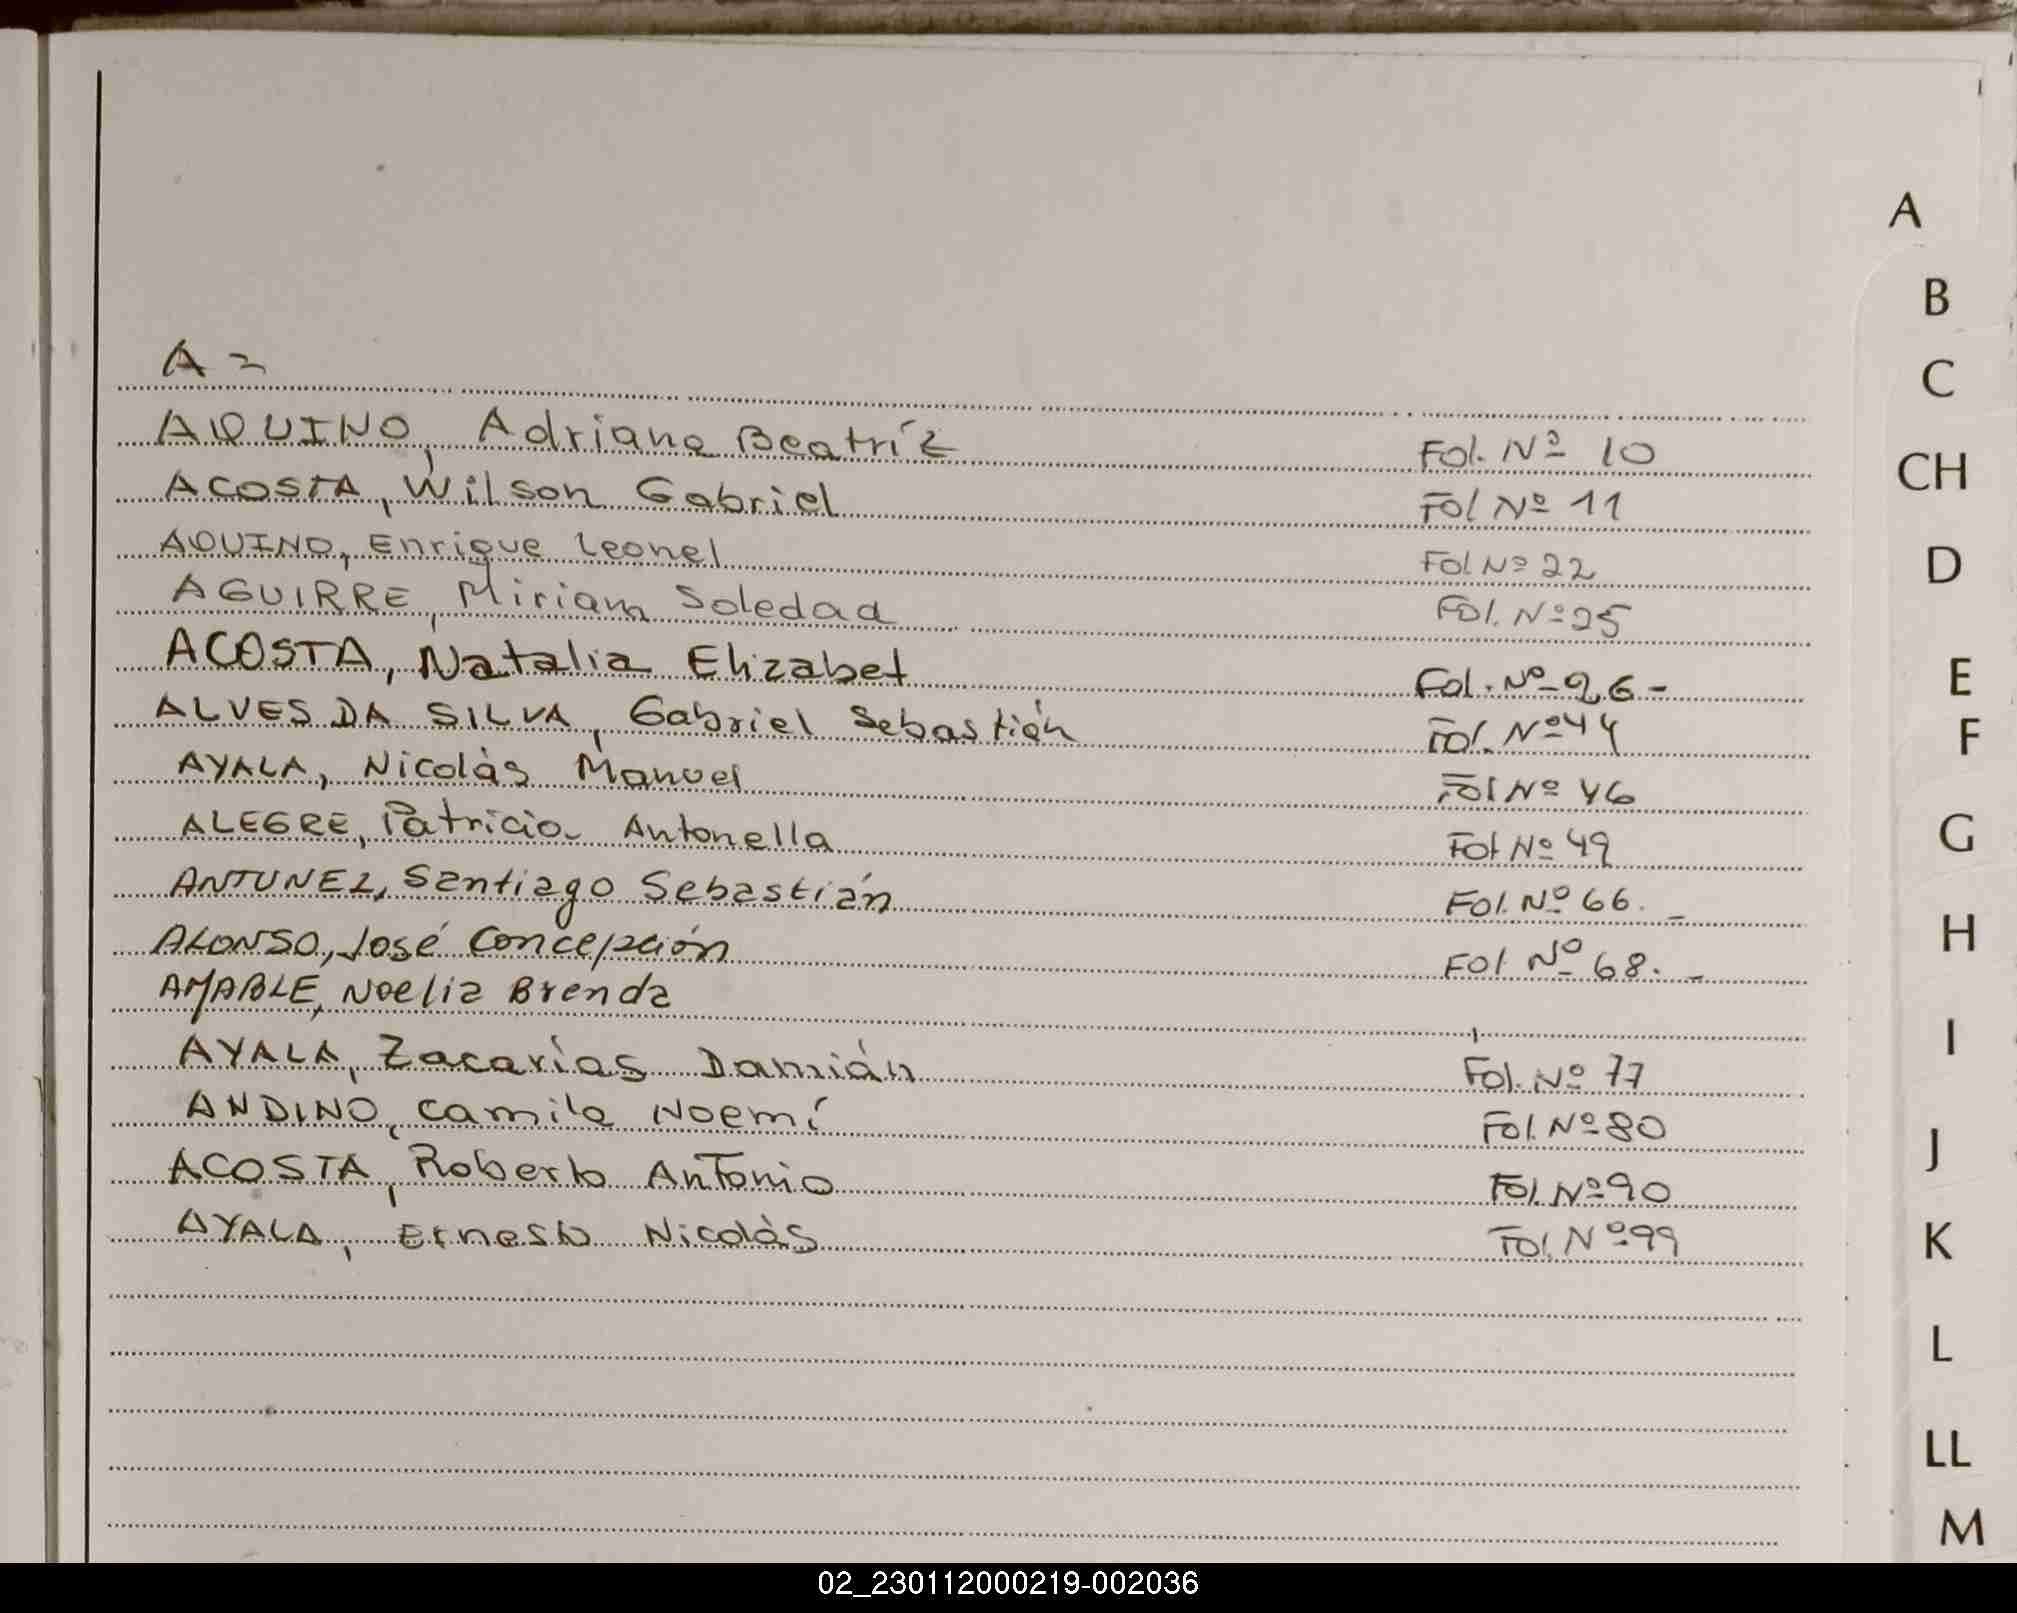 A =
AQUINO, Adriana Beatríz Fol. Nº 10
ACOSTA, Wilson Gabriel Fol Nº 11
AQUINO, Enrique Leonel Fol Nº 22
AGUIRRE, Miriam Soledad Fol. Nº 25
ACOSTA, Natalia Elizabet Fol. Nº 26 -
ALVES DA SILVA, Gabriel Sebastián Fol. Nº 44
AYALA, Nicolás Manuel Fol Nº 46
ALEGRE, Patricia Antonella Fol Nº 49
ANTUNEZ, Santiago Sebastián Fol. Nº 66. -
ALONSO, José Concepción Fol Nº 68. -
AMABLE, Noelia Brenda
AYALA, Zacarías Damián Fol. Nº 77
ANDINO, Camila Noemí Fol. Nº 80
ACOSTA, Roberto Antonio Fol. Nº 90
AYALA, Ernesto Nicolás Fol. Nº 99
A
B
C
CH
D
E
F
G
H
I
J
K
L
LL
M
02_230112000219-002036